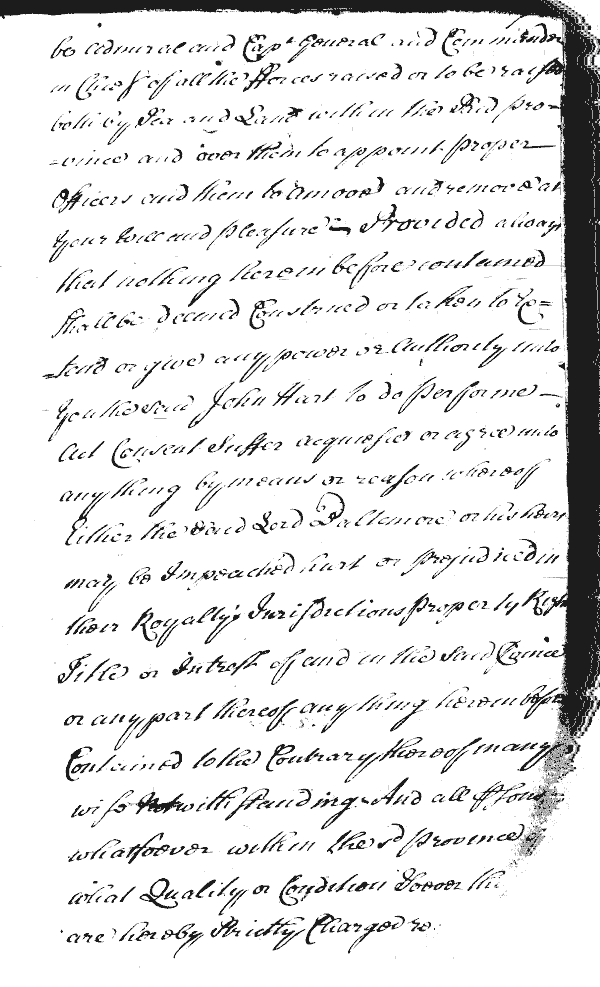 be Admiral and Capt General and Commander
in Chief of all the fforces raised or to be raised
both by Sea and Land within the Said Pro=
=vince and over them to appoint proper
Officers and them to amoove and remove at
Your Will and pleasure Provided always
that nothing herein before contained
Shall be Deemed Construed or taken to Ex=
=tend or give any power or Authority unto
You the said John Hart to do performe
Act Consent Suffer acquiesce or agree unto
any thing by means or reason whereoff
Either the said Lord Baltemore or his heirs
may be Impeached hurt or prejudiced in
their Royalty's Jurisdictions Property Right
Title or Intrest off and in the said Province
or any part thereoff any thing herein before
Contained to the Contrary thereof in any
wise notwithstanding And all
whatsoever within the sd Province of
what Quality or Condition Soever the
are hereby Strictly Charged